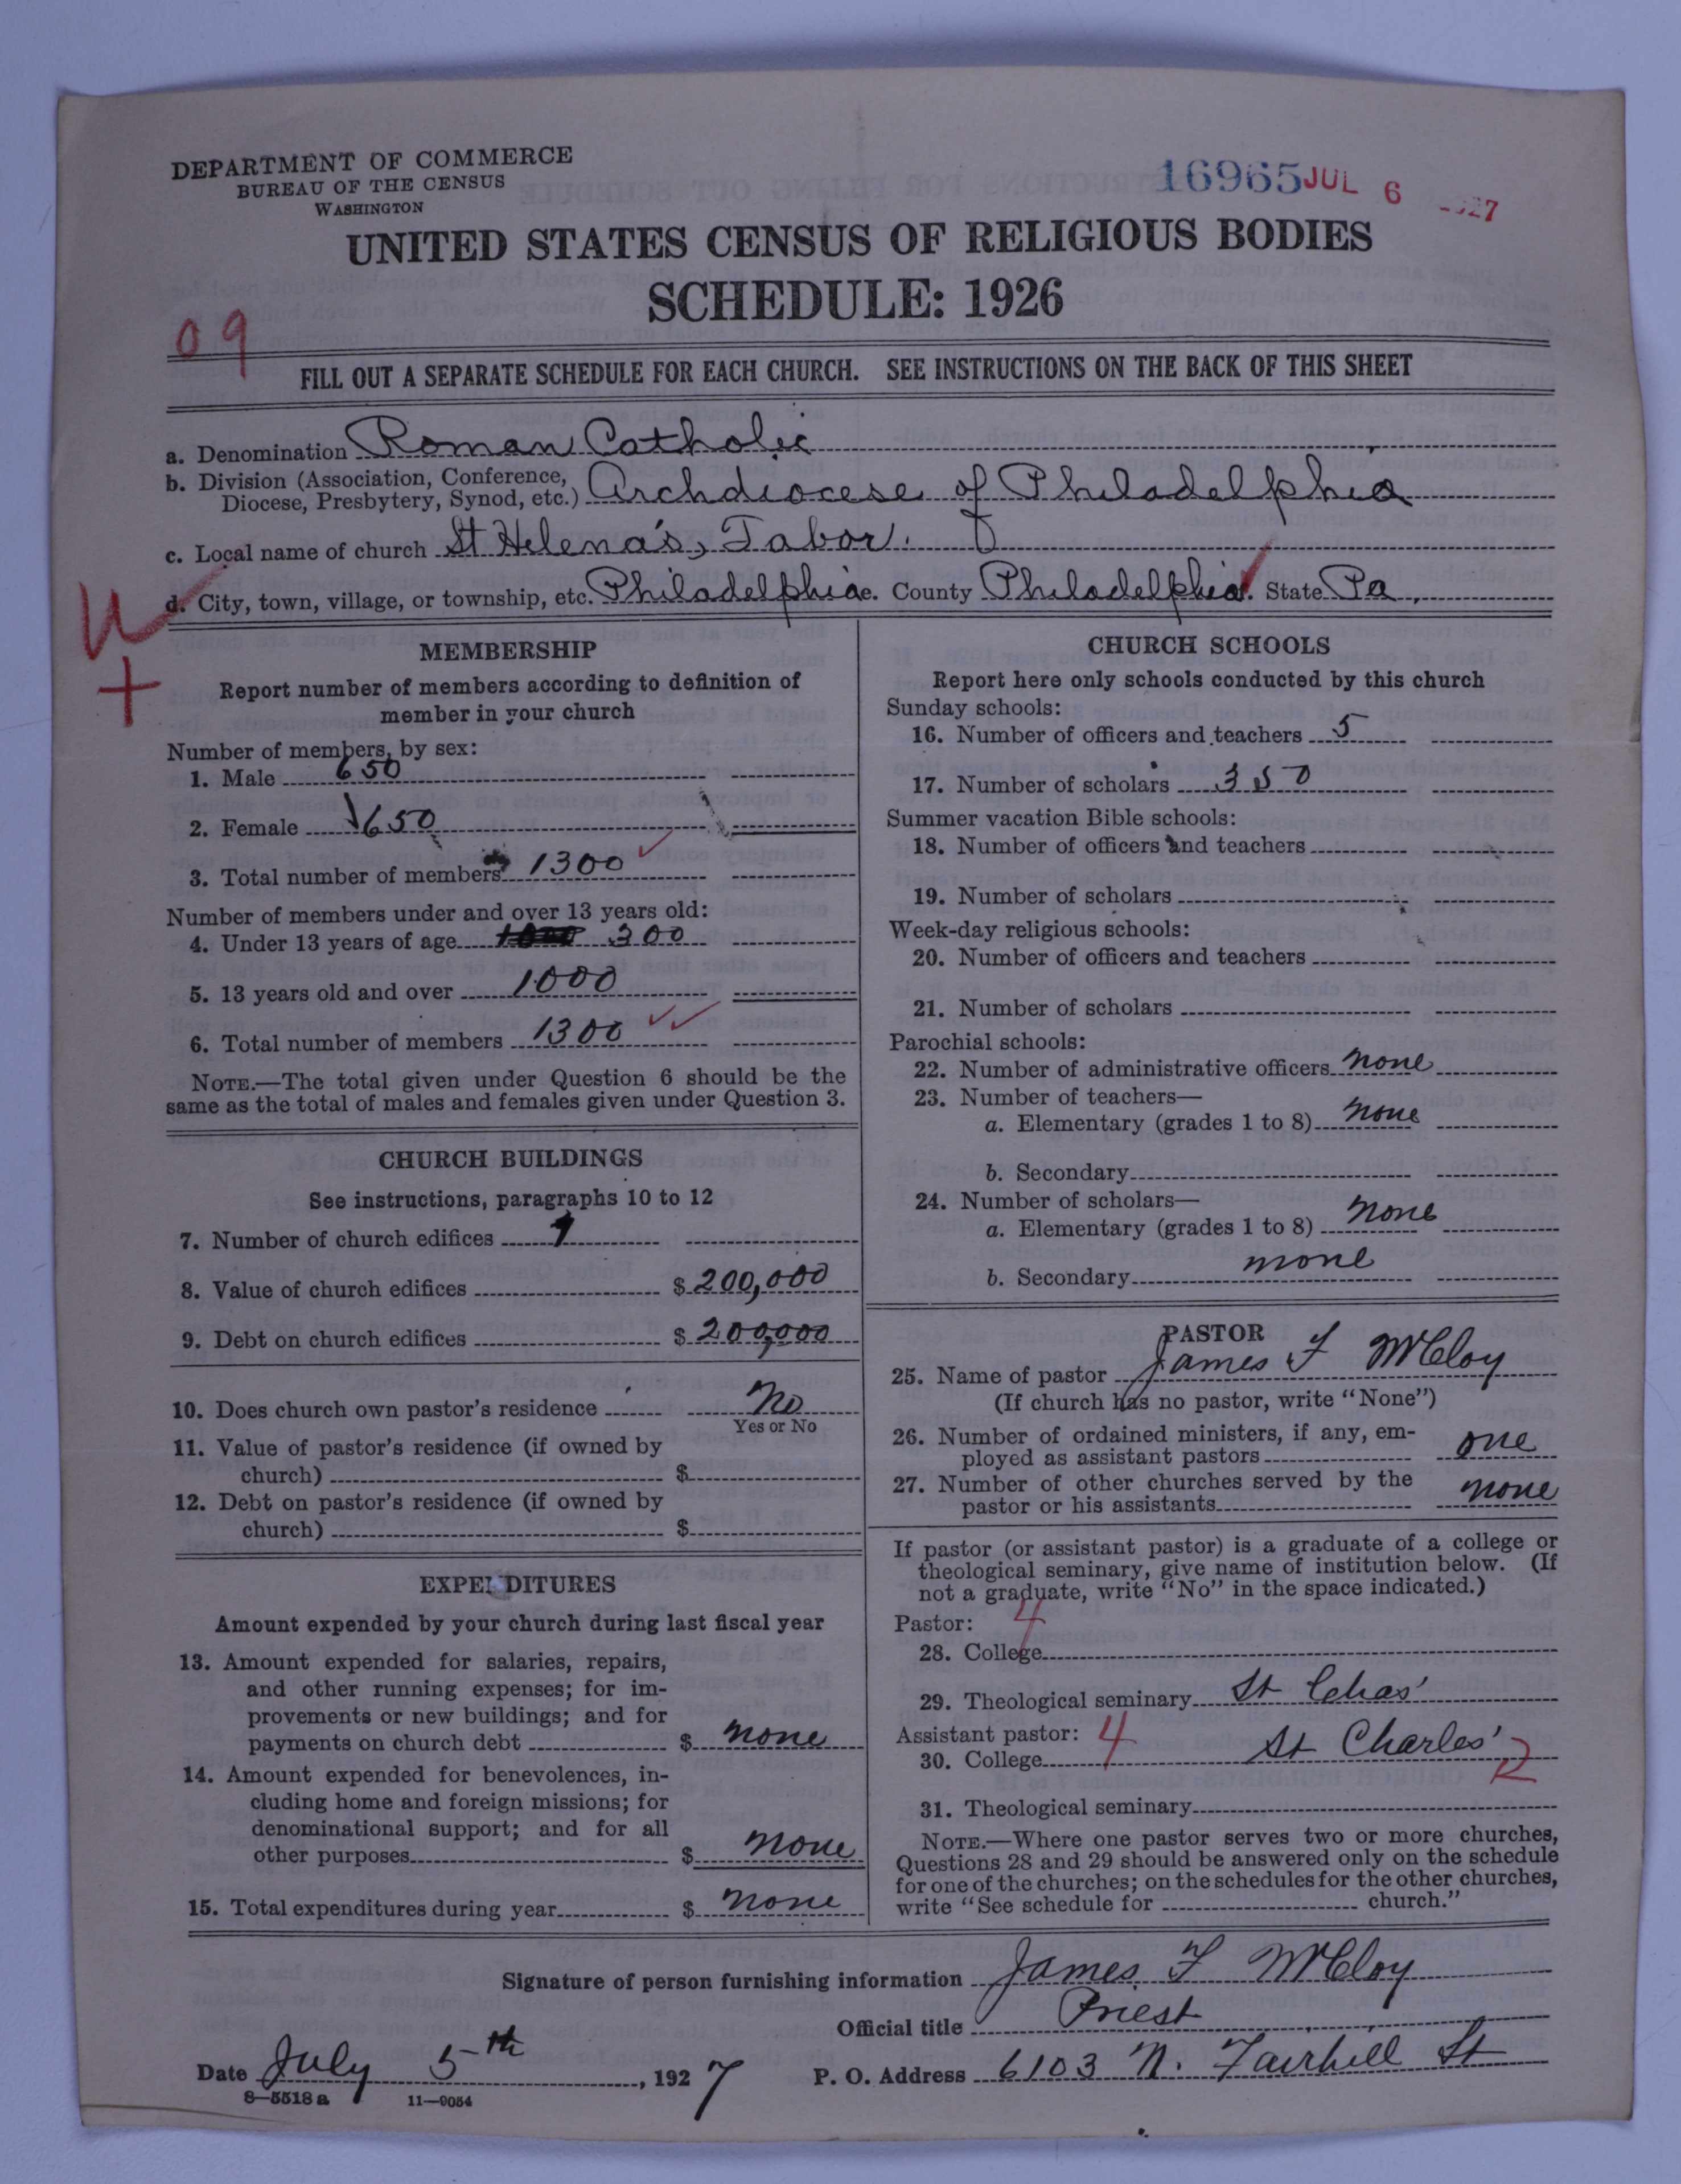 DEPARTMENT OF COMMERCE
BUREAU OF THE CENSUS
WASHINGTON
16965 JUL 6 1927
UNITED STATES CENSUS OF RELIGIOUS BODIES
SCHEDULE: 1926
09
FILL OUT A SEPARATE SCHEDULE FOR EACH CHURCH. SEE INSTRUCTIONS ON THE BACK OF THIS SHEET
a. Denomination Roman Catholic
b. Division (Association, Conference, Diocese, Presbytery, Synod, etc.) Archdiocese of Philadelphia
c. Local name of church St Helena's, Tabor.
d. City, town, village, or township, etc. Philadelphia e. County Philadelphia f. State Pa.
MEMBERSHIP
Report number of members according to definition of
member in your church
Number of members, by sex:
1. Male 650
2. Female 650
3. Total number of members 1300
Number of members under and over 13 years old:
4. Under 13 years of age 300
5. 13 years old and over 1000
6. Total number of members 1300
NOTE.—The total given under Question 6 should be the
same as the total of males and females given under Question 3.
CHURCH BUILDINGS
See instructions, paragraphs 10 to 12
7. Number of church edifices 1
8. Value of church edifices $ 200,000
9. Debt on church edifices $ 200,000
10. Does church own pastor's residence No
Yes or No
11. Value of pastor's residence (if owned by
church) $
12. Debt on pastor's residence (if owned by
church) $
EXPENDITURES
Amount expended by your church during last fiscal year
13. Amount expended for salaries, repairs,
and other running expenses; for im-
provements or new buildings; and for
payments on church debt $ none
14. Amount expended for benevolences, in-
cluding home and foreign missions; for
denominational support; and for all
other purposes $ none
15. Total expenditures during year $ none
CHURCH SCHOOLS
Report here only schools conducted by this church
Sunday schools:
16. Number of officers and teachers 5
17. Number of scholars 350
Summer vacation Bible schools:
18. Number of officers and teachers
19. Number of scholars
Week-day religious schools:
20. Number of officers and teachers
21. Number of scholars
Parochial schools:
22. Number of administrative officers none
23. Number of teachers—
a. Elementary (grades 1 to 8) none
b. Secondary
24. Number of scholars—
a. Elementary (grades 1 to 8) none
b. Secondary none
PASTOR
25. Name of pastor James F McCloy
(If church has no pastor, write "None")
26. Number of ordained ministers, if any, em-
ployed as assistant pastors one
27. Number of other churches served by the
pastor or his assistants none
If pastor (or assistant pastor) is a graduate of a college or
theological seminary, give name of institution below. (If
not a graduate, write "No" in the space indicated.)
Pastor: 4
28. College
29. Theological seminary St Chas'
Assistant pastor: 4
30. College St Charles'
31. Theological seminary
NOTE.—Where one pastor serves two or more churches,
Questions 28 and 29 should be answered only on the schedule
for one of the churches; on the schedules for the other churches,
write "See schedule for church."
Signature of person furnishing information James F McCloy
Official title Priest
Date July 5th, 1927 P. O. Address 6103 N. Fairhill St
8—5518a 11—9054